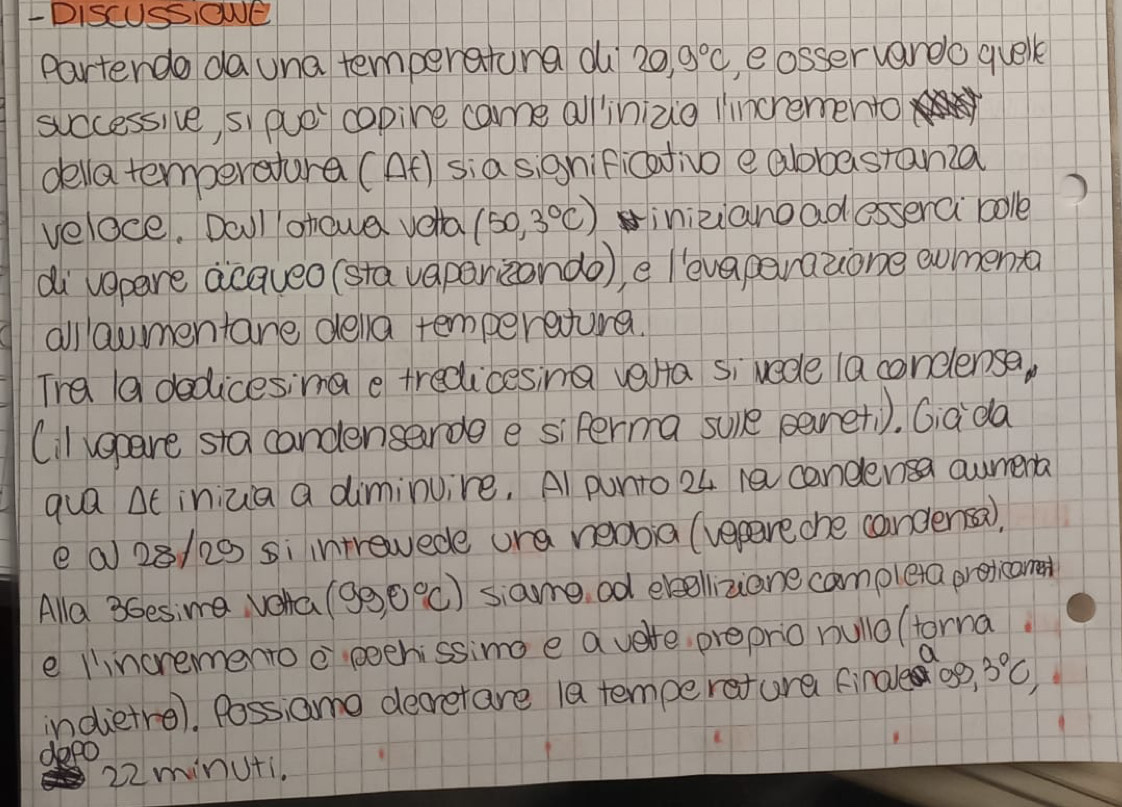 - DISCUSSIONE
Partendo da una temperatura di 20,9°C, e osservando quelle
successive, si può capire come all'inizio l'incremento
della temperatura (Δt) sia significativo e abbastanza
veloce. Dall'ottava volta (50,3°C) iniziano ad esserci bolle
di vapore acqueo (sta vaporizzando), e l'evaporazione aumenta
all'aumentare della temperatura.
Tra la dodicesima e tredicesima volta si vede la condensa,
(il vapore sta condensando e si ferma sulle pareti). Già da
qua Δt inizia a diminuire. Al punto 24 la condensa aumenta
e al 28/29 si intravvede una nebbia (vapore che condensa).
Alla 36esima volta (99,0°C) siamo ad ebollizione completa praticament
e l'incremento è pochissimo e a volte proprio nullo (torna
indietro). Possiamo decretare la temperatura finale a 99,3°C,
dopo 22 minuti.